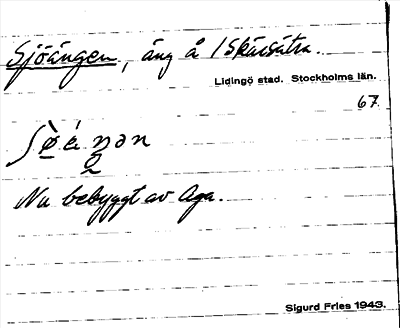 Sjöängen, äng å 1 Skärsätra.
Lidingö stad. Stockholms län.
67.
Nu bebyggt av Aga.
Sigurd Fries 1943.